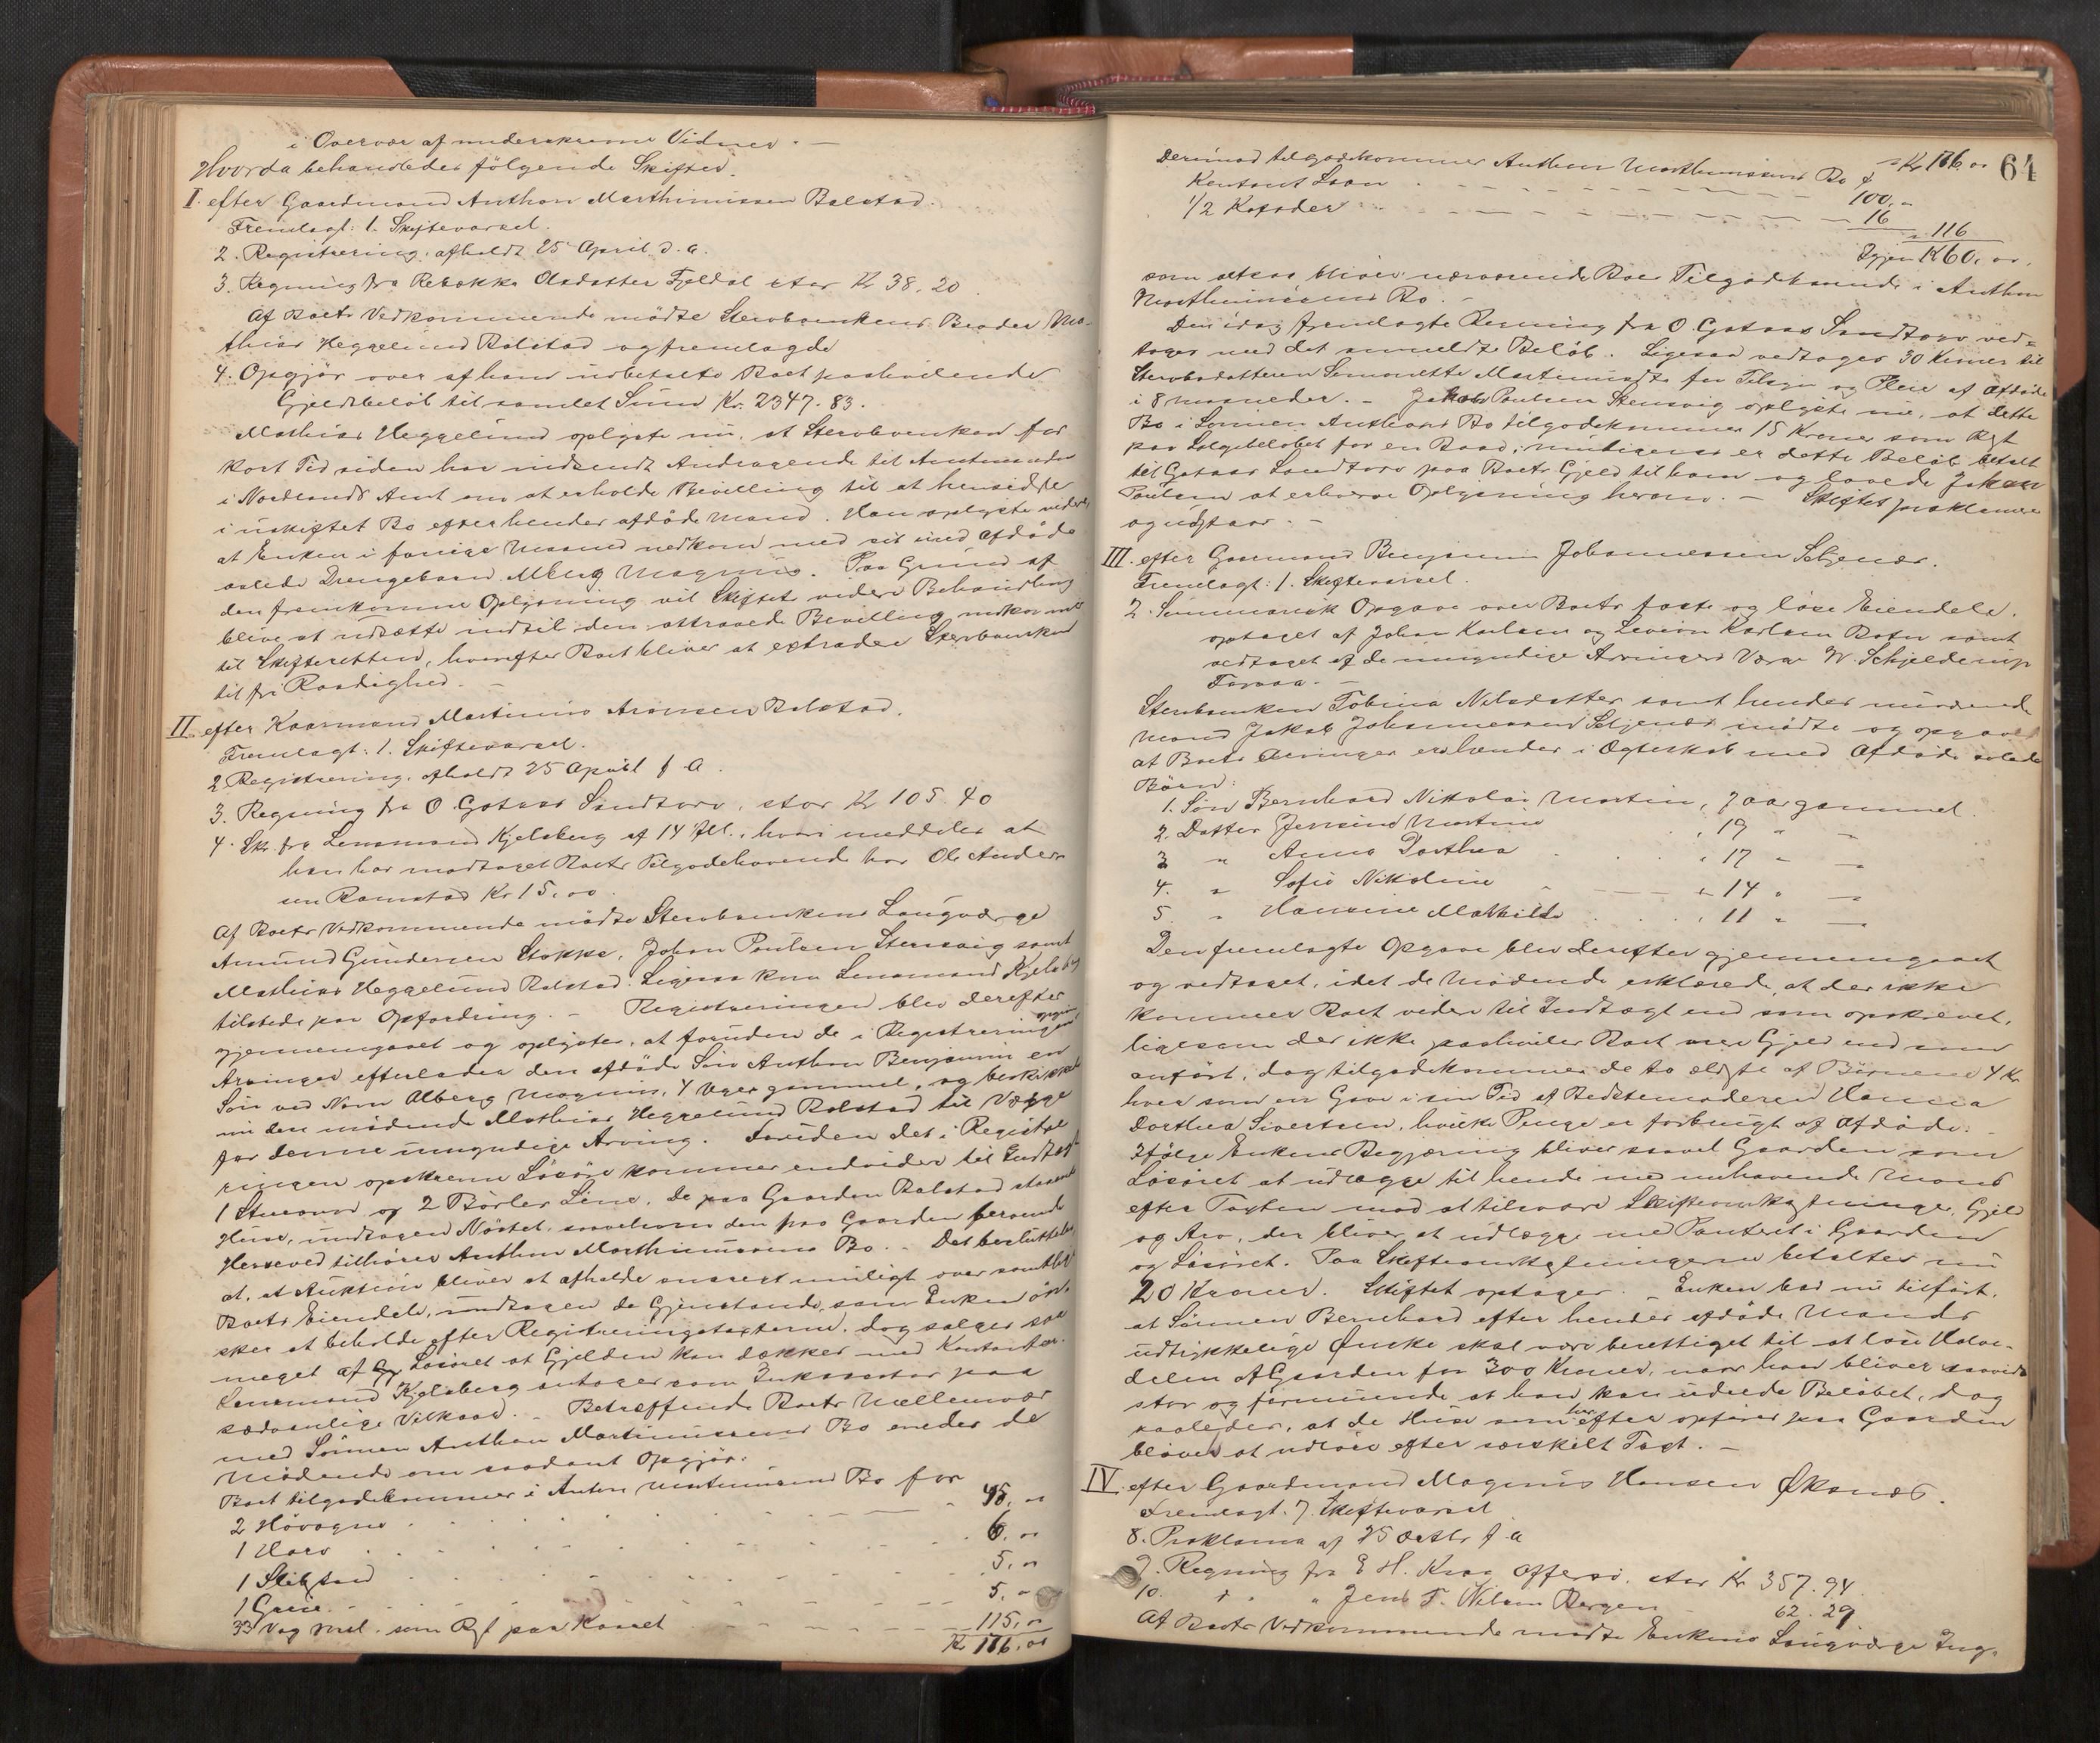 i Overvær af underskrevne Vidner. —
Hvorda behandledes følgende Skifter.
I. efter Gaardmand Anthon Marthinussen Balstad.
Fremlagt: 1. Skiftevarsel.
2. Registrering, afholdt 25 April d. a.
3. Regning fra Rebekka Olsdatter Fjeldal stor Kr 38.20
Af Boets Vedkommende mødte Stervboenkens Broder Ma-
thias Heggelund Balstad og fremlagde
4. Opgjør over af ham udbetalte Boet paahvilende
Gjeldsbeløb til samlet Sum Kr. 2347.83.
Mathias Heggelund oplyste nu, at Stervboenken for
kort Tid siden har indsendt Andragende til Amtmanden
i Nordlands Amt om at erholde Bevilling til at hensidde
i uskiftet Bo efter hendes afdøde Mand. Han oplyste videre,
at Enken i forrige Maaned nedkom med sit med Afdøde
avlede Drengebarn Alberg Magnus. Paa Grund af
den fremkomne Oplysning vil Skiftets videre Behandling
blive at udsætte indtil den attraaede Bevilling indkommer
til Skifteretten, hvorefter Boet bliver at extradere Stervboenken
til fri Raadighed. —
II. efter Kaarmand Martinus Aronsen Balstad.
Fremlagt: 1. Skiftevarsel.
2. Registrering, afholdt 25 April d. A.
3. Regning fra O. Gotaas Sandtorv, stor Kr 105.40
4. Skr. fra Lensmand Kjelsberg af 14 , hvori meddeles at
han har modtaget Boets Tilgodehavende hos Ole Anders-
sen Ramstad Kr 15,00.
Af Boets Vedkommende mødte Stervboenkens Laugværge
Amund Gundersen Stokke, Johan Paulsen Stensvig samt
Mathias Heggelund Balstad. Ligesaa kom Lensmand Kjelsberg
tilstede paa Opfordring. — Registreringen blev derefter
gjennemgaaet og oplystes, at foruden de i Registreringen opgivne
Arvinger efterlader den afdøde Søn Anthon Benjamin en
Søn ved Navn Alberg Magnus, 4 Uger gammel, og beskikkedes
nu den mødende Mathias Heggelund Balstad til Værge
for denne umyndige Arving. Foruden det i Registre-
ringen opskrevne Løsøre kommer endvidere til Indtægt
1 og 2 Børler Line. De paa Gaarden Balstad staaende
Huse, undtagen Nøstet, saavelsom den paa Gaarden beroende
Hesseved tilhører Anthon Marthinussens Bo. — Det besluttedes
at, at Auktion bliver at afholde snarest muligt over samtlige
Boets Eiendele, undtagen de Gjenstande, som Enken øn-
sker at beholde efter Registreringstaxterne, dog sælges saa
meget af Løsøret at Gjelden kan dækkes med Kontanter.
Lensmand Kjelsberg antages som Inkassator paa
sædvanlige Vilkaar. — Betræffende Boets Mellemvær
med Sønnen Anthon Martinussens Bo enedes de
Mødende om saadant Opgjør:
Boet tilgodekommer i Anton Martinussens Bo for
2 Høvogne . . . . . 45,00
1 Harv . . . . . 6,00
1 Slibsten . . . . . 5,00
1 Greie . . . . . 5,00
33 Vog Mel som Rgt paa Kaaret — 115,00
Kr 176,00
64
Kr 176.00
Derimod tilgodekommer Anthon Marthinussens Bo f
Kontant Laan . . . . . 100,00
1/2 Kofoder . . . . . 16 " 116
Igjen Kr 60,00.
som altsaa bliver nærværende Boes Tilgodehavende i Anthon
Marthinussens Bo. —
Den idag fremlagte Regning fra O. Gotaas Sandtorv ved-
toges med det anmeldte Beløb. Ligesaa vedtoges 30 Kroner til
Stervbodatteren Simonette Martinusdtr for Tilsyn og Pleie af Afdøde
i 8 Maaneder. — Johan Paulsen Stensvig oplyste nu, at dette
Bo i Sønnen Anthons Bo tilgodekommer 15 Kroner som Rgt
paa Salgsbeløbet for en Baad; muligens er dette Beløb betalt
til Gotaas Sandtorv paa Boets Gjeld til ham og lovede Johan
Paulsen at erhverve Oplysning herom. — Skiftet proklameres
og udstaar. —
III. efter Gaarmand Benjamin Johannessen Seljenæs.
Fremlagt: 1. Skiftevarsel.
2. Summarisk Opgave over Boets faste og løse Eiendele.
optaget af Johan Karlsen og Levion Karlsen Botn samt
vedtaget af de umyndige Arvingers Værge W. Schjelderup
Forvaa. —
Stervboenken Tobina Nilsdatter samt hendes nuværende
Mand Jakob Johannessen Seljenæs mødte og opgav,
at Boets Arvinger er hendes i Ægteskab med Afdøde avlede
Børn:
1. Søn Bernhard Nikolai Martin, 7 aar gammel.
2. Datter Jensine Martine , 19 " —
3 " Anna Dorthea , 17 " —
4. " Sofie Nikoline , 14 " —
5. " Hansine Mathilde , 11 " —
Den fremlagte Opgave blev derefter gjennemgaaet
og vedtaget, idet de Mødende erklærede, at der ikke
kommer Boet videre til Indtægt end som opskrevet,
ligesom der ikke paahviler Boet mere Gjeld end som
anført, dog tilgodekommer de to ældste af Børnene 4 Kr
hver som en Gave i sin Tid af Bedstemoderen Hanna
Dorthea Sivertsen, hvilke Penge er forbrugt af Afdøde. —
Ifølge Enkens Begjæring bliver saavel Gaarden som
Løsøret at udlægge til hende med nuhavende Mand
efter Taxten mod at tilsvare Skifteomkostninger, Gjeld
og Arv, der bliver at udlægge med Panteret i Gaarden
og Løsøret. Paa Skifteomkostningerne betaltes nu
20 Kroner. Skiftet optages. — Enken bad nu tilført,
at Sønnen Bernhard efter hendes afdøde Mands
udtrykkelige Ønske skal være berettiget til at løse Halv-
delen af Gaarden for 300 Kroner, naar han bliver saavidt
stor og formuende at han kan udrede Beløbet, dog
saaledes, at de Huse som herefter opføres paa Gaarden
bliver at udløse efter særskilt Taxt. —
IV. efter Gaardmand Magnus Hansen Øksnæs.
Fremlagt: 7. Skiftevarsel
8. Proklama af 25 Octbr f. a
9. Regning fra E. H. Krog Offersø, stor Kr 357.94
10. " " Jens F. Nilsen Bergen 62.29
Af Boets Vedkommende mødte Enkens Laugværge Ing-